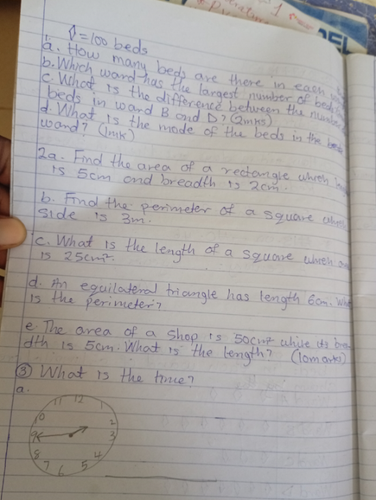 = 100 beds
a. How many beds are there in each
b. Which ward has the largest number of beds
c. What is the difference between the number
beds in ward B and D? (2mks)
d. What is the mode of the beds in the
ward? (1mk)
2a. Find the area of a rectangle which
is 5cm and breadth is 2cm.
b. Find the perimeter of a square
side is 3m.
c. What is the length of a square which
is 25cm².
d. An equilateral triangle has length 6cm.
is the perimeter?
e The area of a shop is 50cm² while its
dth is 5cm. What is the length? (10marks)
③ What is the time?
a.
11 12 1
2
3
4
5
6
7
8
9
0